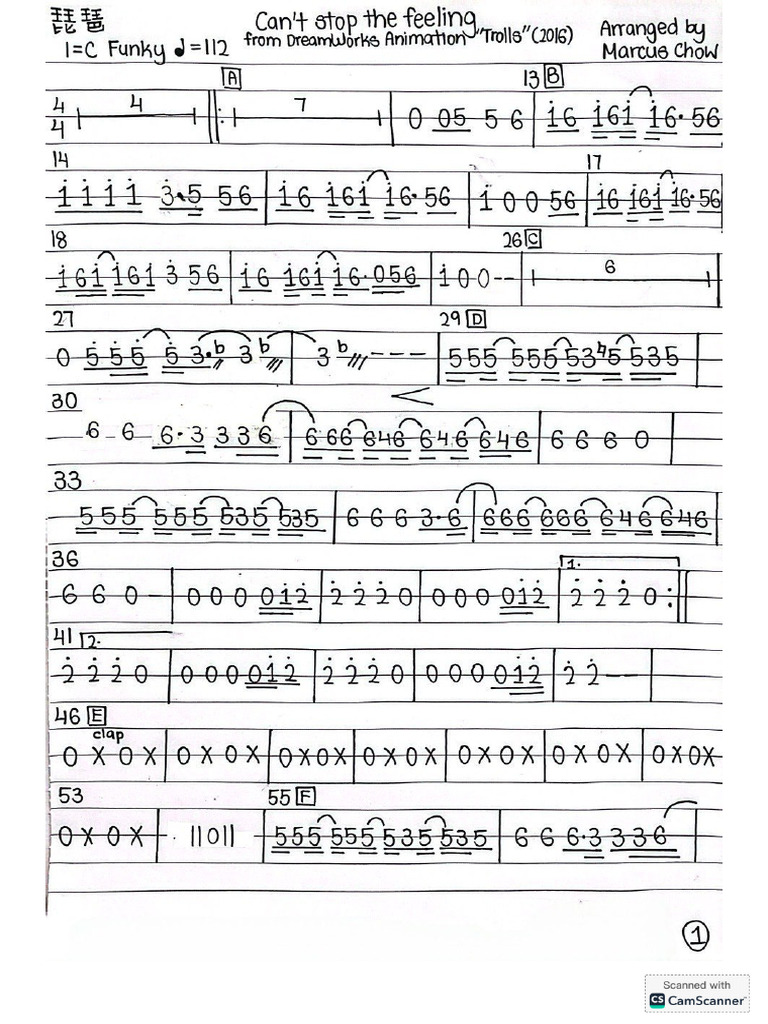 琵琶
Can't stop the feeling
Arranged by
1=C Funky ♩=112
from DreamWorks Animation "Trolls" (2016)
Marcus Chow
A 13 B
4/4 4 ‖: 7 | 0 05 5 6 | i6 i6i i6· 56
14 17
i i i i 3·5 56 | i6 i6i i6·56 | i 0 0 56 | i6 i6i i6·56
18 26 C
i6i i6i 3 56 | i6 i6i i6·056 | i 0 0 - - | 6 |
27 29 D
0 5 5 5 5 3·b 3 b | 3 b - - - | 555 555 53♮5 535 |
30
6 6 6·3 336 | 666 646 646 646 | 6 6 6 0 |
33
555 555 535 535 | 6 6 6 3·6 | 666 666 646 646 |
36 1.
6 6 0 - | 0 0 0 0i2 | 2 2 2 0 | 0 0 0 0i2 | 2 2 2 0 :‖
41 2.
2 2 2 0 | 0 0 0 0i2 | 2 2 2 0 | 0 0 0 0i2 | 2 2 - - |
46 E
clap
0 X 0 X | 0 X 0 X | 0 X 0 X | 0 X 0 X | 0 X 0 X | 0 X 0 X | 0 X 0 X
53 55 F
0 X 0 X | · 11011 | 555 555 535 535 | 6 6 6·3 336 |
1
Scanned with
CS CamScanner